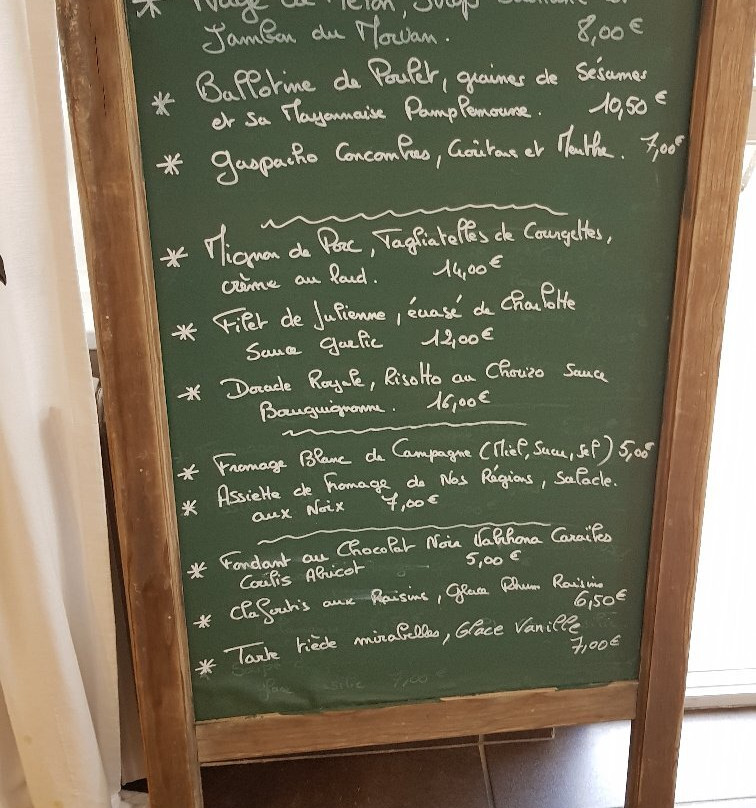 * Nage de Melon, Sirop
Jambon du Morvan. 8,00€
* Ballotine de Poulet, graines de Sésames
et sa Mayonnaise Pamplemousse. 10,50€
* Gaspacho Concombres, Croûtons et Menthe. 7,00€
* Mignon de Porc, Tagliatelles de Courgettes,
crème au lard. 14,00€
* Filet de Julienne, écrasé de Charlotte
Sauce garlic 12,00€
* Dorade Royale, Risotto au Chorizo Sauce
Bourguignonne. 16,00€
* Fromage Blanc de Campagne (Miel, Sucre, Sel) 5,00€
* Assiette de fromage de Nos Régions, Salade.
aux Noix 7,00€
* Fondant au Chocolat Noir Valrhona Caraïbes
Coulis Abricot 5,00€
* Clafoutis aux Raisins, Glace Rhum Raisins
6,50€
* Tarte tiède mirabelles, Glace Vanille
7,00€